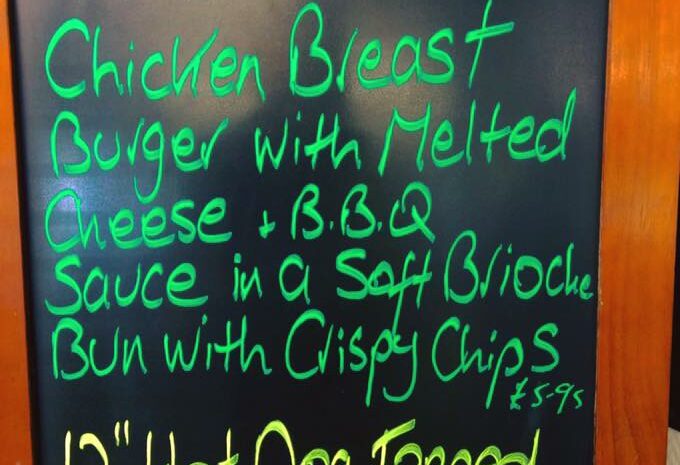 Chicken Breast
Burger with Melted
Cheese + B.B.Q
Sauce in a Soft Brioche
Bun with Crispy Chips
£5-95
12" Hot Dog Topped